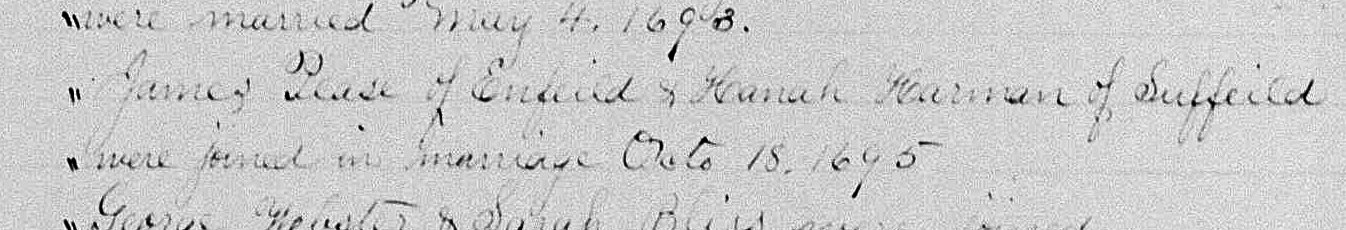 " were married May 4, 1693.
" James Pease of Enfeild & Hanah Harman of Suffeild
" were joined in marriage Octo 18, 1695
" George Webster & Sarah Bliss were joined